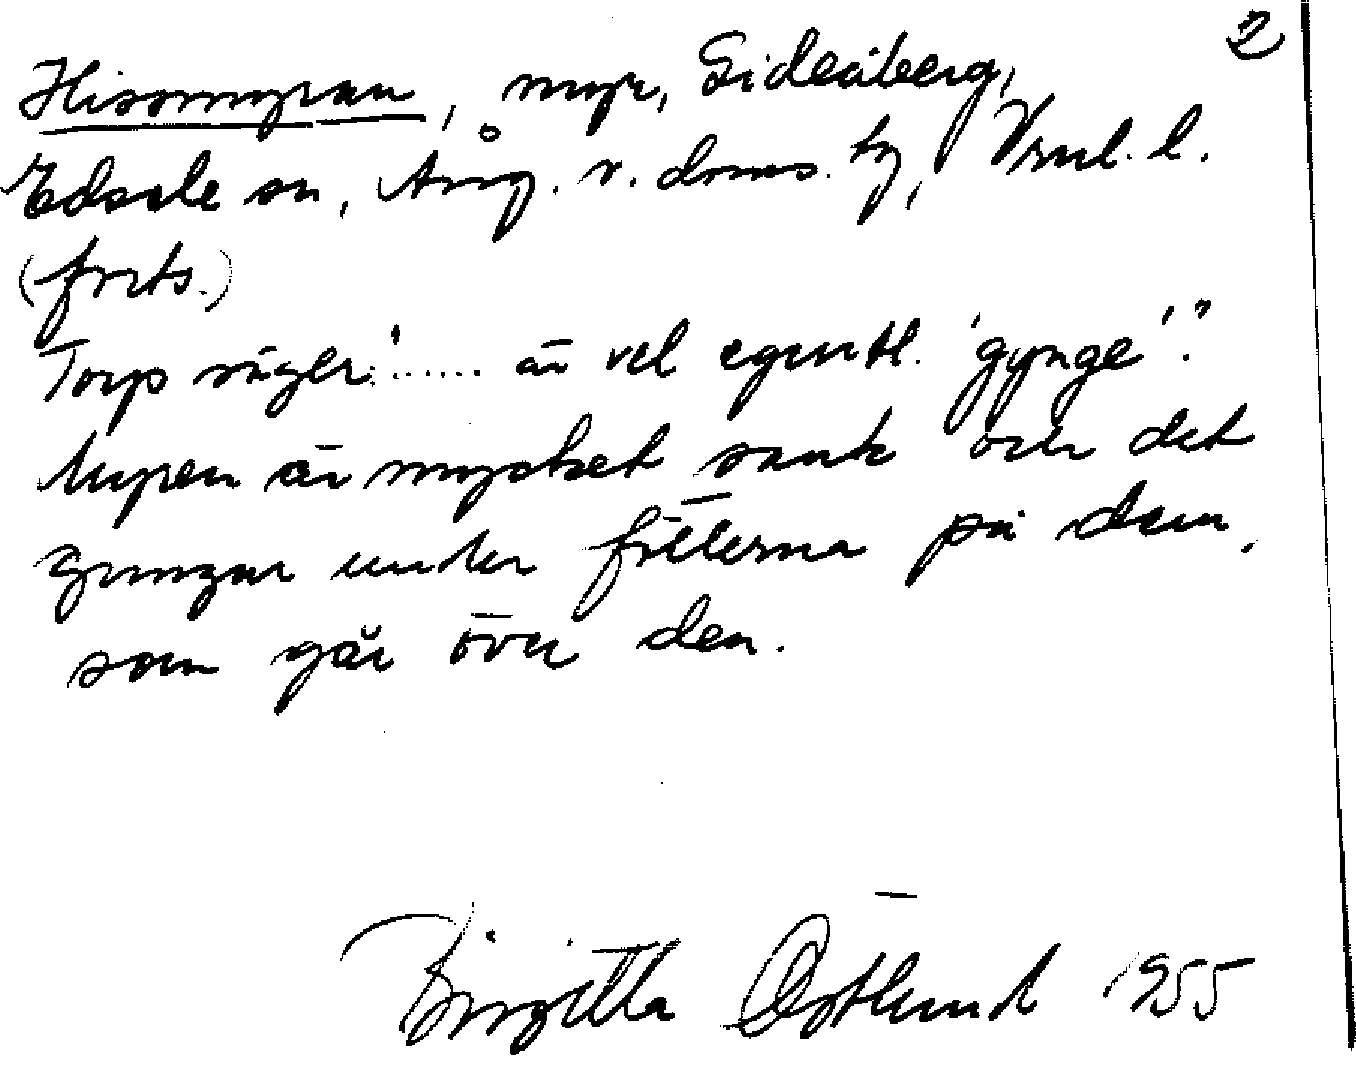 2
Hissomyran, myr, Gideåberg,
Edsele sn, Ång. v. doms. hg, Vrnl. l.
(forts.)
Torp säger: "..... är vel egentl. 'gynge'."
Myren är mycket sank och det
gungar under fötterna på dem,
som går över den.
Birgitta Östlund 1955